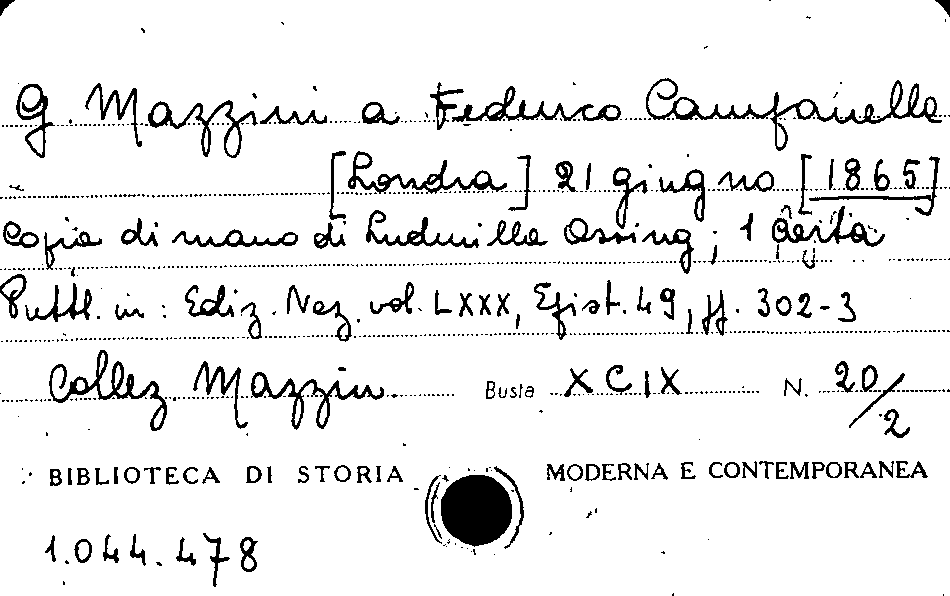 G. Mazzini a Federico Campanella
[Londra] 21 giugno [1865]
Copia di mano di Ludmilla Assing; 1 carta
Pubbl. in: Ediz. Naz. vol. LXXX, Epist. 49, pp. 302-3
Collez. Mazzini. Busta XCIX N. 20/2
BIBLIOTECA DI STORIA MODERNA E CONTEMPORANEA
1.044.478